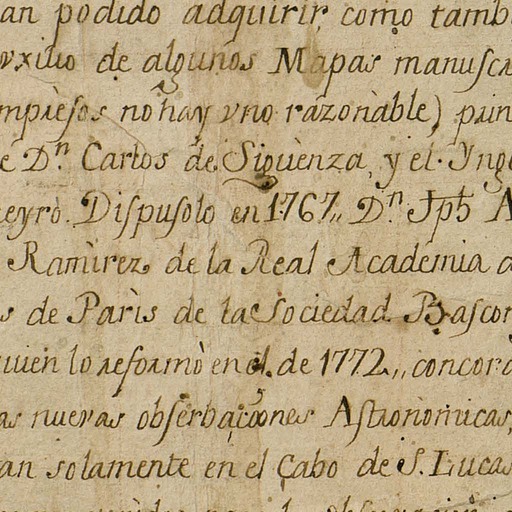 an podido adquirir, como tamb
uxilio de algunos Mapas manusc
mpresos no hay vno razonable) pun
e Dn. Carlos de Siguenza, y el Yng
eyro. Dispusolo en 1767,, Dn. Jph A
Ramirez de la Real Academia
s de Paris de la Sociedad Bascon
uien lo reformò en el de 1772,, concord
as nuevas obserbaçiones Astronomicas,
an solamente en el Cabo de S. Lucas